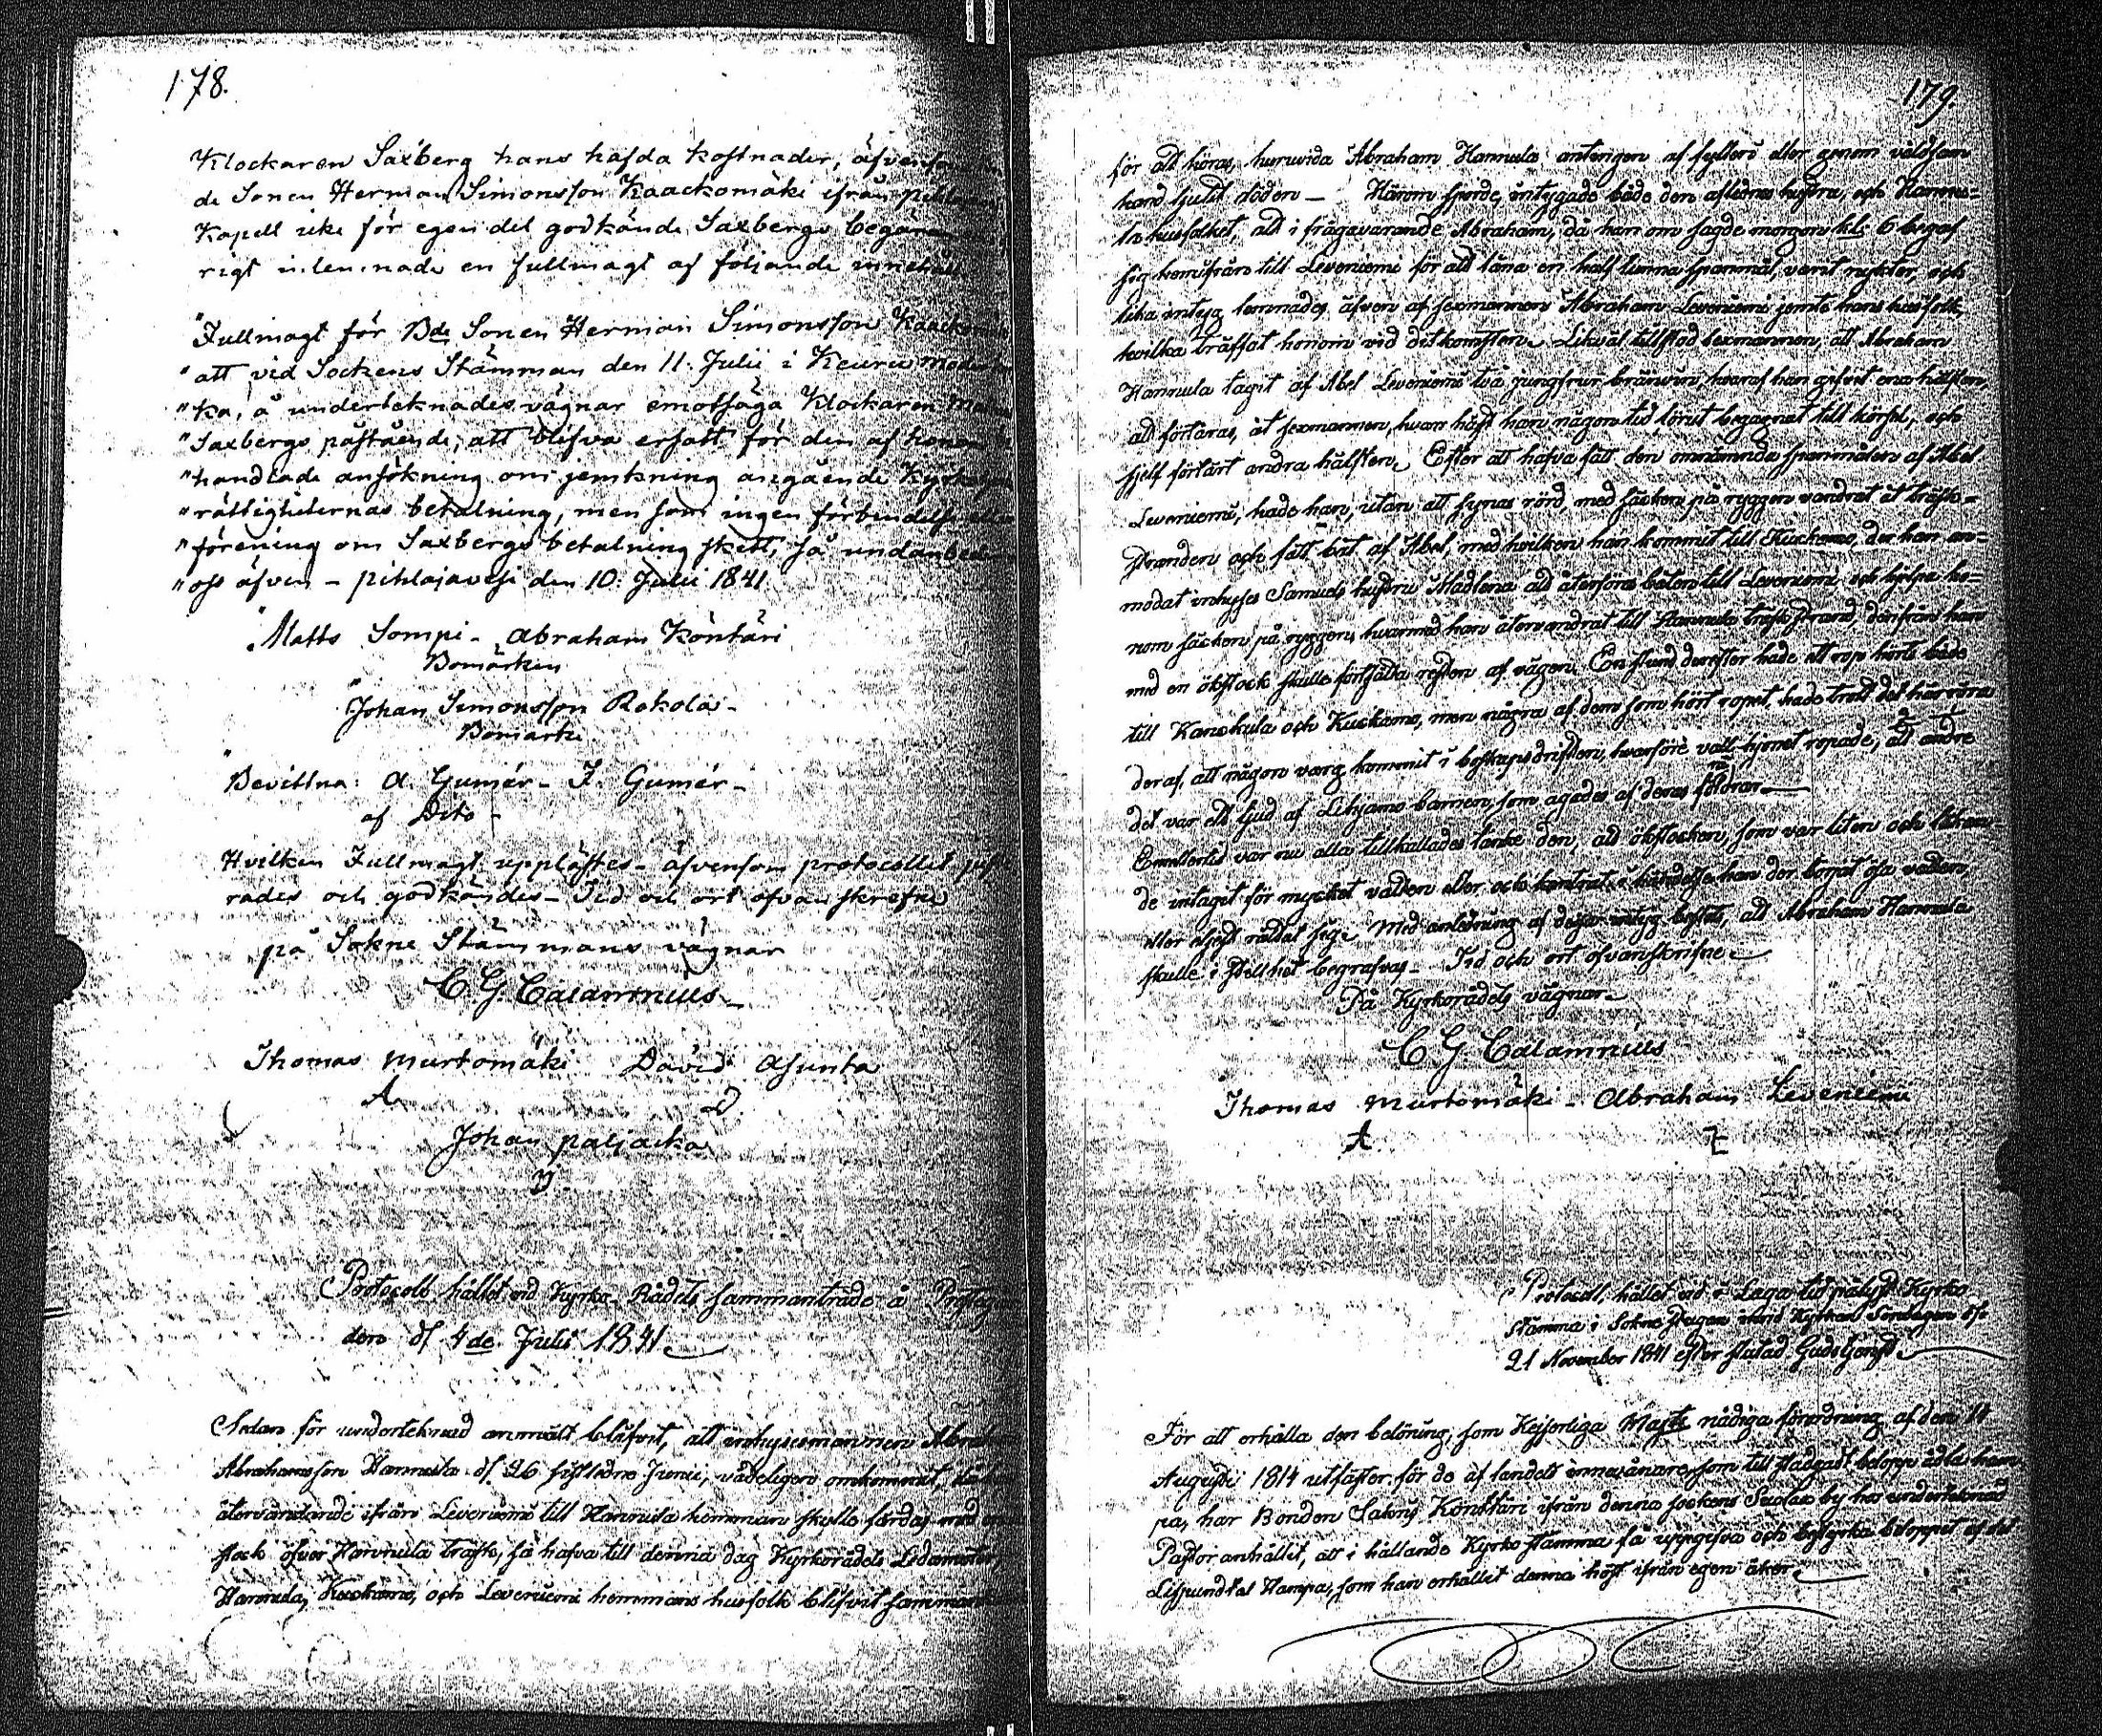 178.
Klockaren Saxberg hans hafda kostnader, äfvenso
de Sonen Herman Simonsson Kaackomäki ifrån pihlajavesi
Kapell icke för egen del godkände Saxbergs begäran
rigt inlemnade en fullmagt af följande innehåll
"Fullmagt för Bde Sonen Herman Simonsson Kaackomäki
" att vid Sockens Stämman den 11. Julii i Keuru Moderkyr
" ka, å underteknades vägnar emotsäga Klockaren
" Saxbergs påstående, att blifva ersatt för den af honom
" handlade ansökning om jemkning angående Kyrko
" rättigheternas betalning, men som ingen förbindelse eller
" förening om Saxbergs betalning skett, så undanbedia
" oss äfven – pihlajavesi den 10. Julii 1841
" Matts Sompi – Abraham Köntäri
Bomärken
" Johan Simonsson Rokola –
Bomärke
" Bevittna: A. Gumér – J. Gumér –
af Dito –
Hvilken Fullmagt upplästes – äfvensom protocollet jus
rades och godkändes – Tid och ort ofvanskrefne
på Sokne Stämmans vägnar
C. G. Calamnius –
Thomas Murtomäki David Asunta
Johan paljacka
Protocoll hållet vid Kyrko Rådets sammanträde å
den 4de Julii 1841.
Sedan för underteknad anmält blifvit, att inhysesmannen Abraham
Abrahamsson Hannula d. 26 sistledne Junii, vådeligen omkommit, då
återvändande ifrån Leveniemi till Hannula hemman skulle färdas med
stock öfver Hannula träsk, så hafva till denna dag Kyrkorådets Ledamöter,
Hannula, Kuckamo, och Leveniemi hemmans husfolk blifvit samman
179.
för att höras, huruvida Abraham Hannula antingen af fylleri eller genom våldsam
hand ljutit döden – Härom sporde, intygade både den aflednes hustru, och Hannu-
la husfolket, att i frågavarande Abraham, då han om sagde morgon kl. 6 begaf
sig hemifrån till Leveniemi för att låna en half tunna spannmål, varit nykter, och
lika intyg lemnades äfven af sexmannen Abraham Leveniemi jemte hans husfolk
hvilka träffat honom vid ditkomsten. Likväl tillstod sexmannen, att Abraham
Hannula tagit af Abel Leveniemi två jungfrur bränvin, hvaraf han gifvit ena hälften,
att förtäras, åt sexmannen, hvars häst han någon tid förut begagnat till körsel, och
sjelf förtärt andra hälften. Efter att hafva fått den omnämnda spanmålen af Abel
Leveniemi, hade han, utan att synas rörd, med säcken på ryggen vandrat åt träsk-
stranden och fått båt af Abel, med hvilken han kommit till Kuckamo, der han an-
modat inhyses Samuels hustru Madlena att återföra båten till Leveniemi, och hjelpa ho-
nom säcken på ryggen, hvarmed han återvandrat till Hannula träsk strand, derifrån han
med en ökstock skulle fortsätta resten af vägen. En stund derefter hade ett rop hörts både
till Kanskula och Kuckamo, men några af dem som hört ropet, hade trott det härröra
deraf, att någon varg kommit i boskapsdriften, hvarföre vall-hjonet ropade, att andre
det var ett ljud af Lihjamo barnen, som agades af deras föräldrar.
Emellertid var nu alla tillkallades tanke den, att ökstocken, som var liten och
de intagit för mycket vatten eller och kantrat, i händelse han der börjat ösa vatten,
eller eljest rättat sig. Med anledning af dessa intyg beslöts, att Abraham Hannula
skulle i stillhet begrafvas – Tid och ort ofvanskrifne –
På Kyrkorådets vägnar –
C G Calamnius
Thomas Murtomäki – Abraham Leveniemi
Protocoll, hållet vid i Laga tid pålyst Kyrko
stämma i Sokne stugan invid Kyrkan Söndagen d.
21 November 1841 efter slutad Gudstjenst.
För att erhålla den belöning, som Kejserliga Majts nådiga förordning af den 14
Augusti 1814 utfäster för de af landets innevånare, som till stadgadt belopp odla ham-
pa, har Bonden Köntäri ifrån denna sockens by hos underteknad
Pastor anhållit, att i hållande Kyrko stämma få uppgifva och bestyrka beloppet af det
Lispundtal Hampa, som han erhållit denna höst ifrån egen åker.